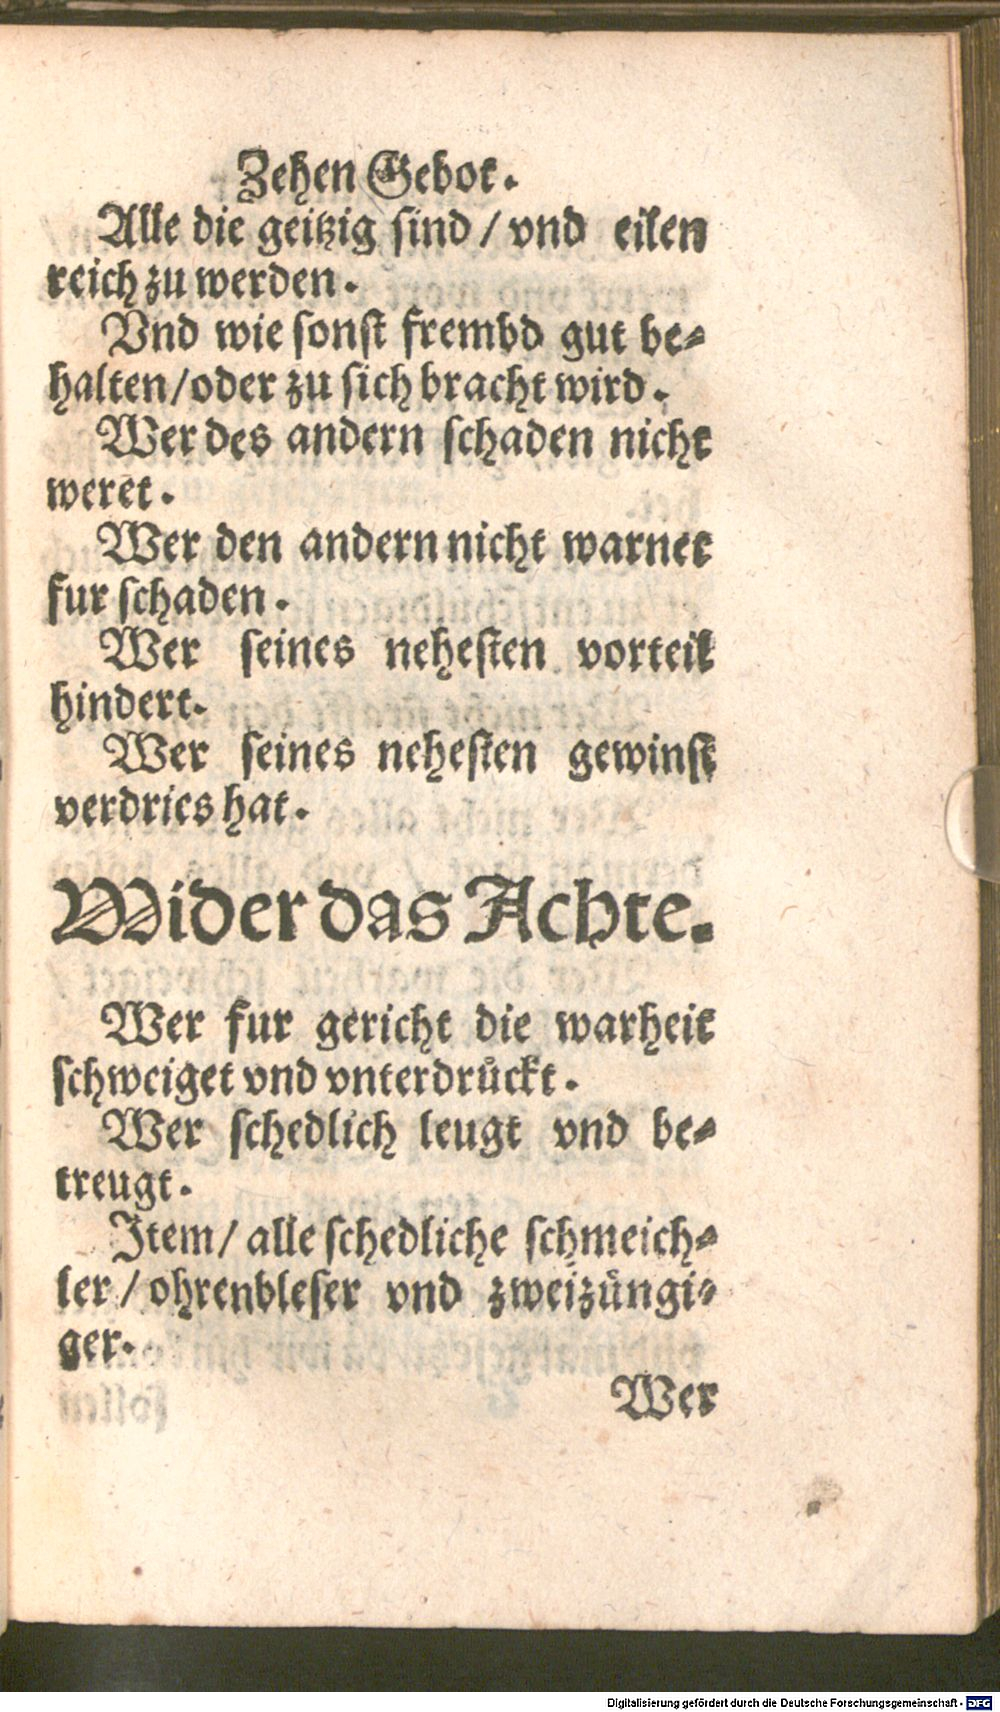 Zehen Gebot.
Alle die geitzig sind / vnd eilen
reich zu werden.
Vnd wie sonst frembd gut be-
halten/oder zu sich bracht wird.
Wer des andern schaden nicht
weret.
Wer den andern nicht warnet
fur schaden.
Wer seines nehesten vorteil
hindert.
Wer seines nehesten gewinst
verdries hat.
Wider das Achte.
Wer fur gericht die warheit
schweiget vnd vnterdruͤckt.
Wer schedlich leugt vnd be-
treugt.
Item/ alle schedliche schmeich-
ler / ohrenbleser vnd zweizüngi-
ger.
Wer
Digitalisierung gefördert durch die Deutsche Forschungsgemeinschaft - DFG